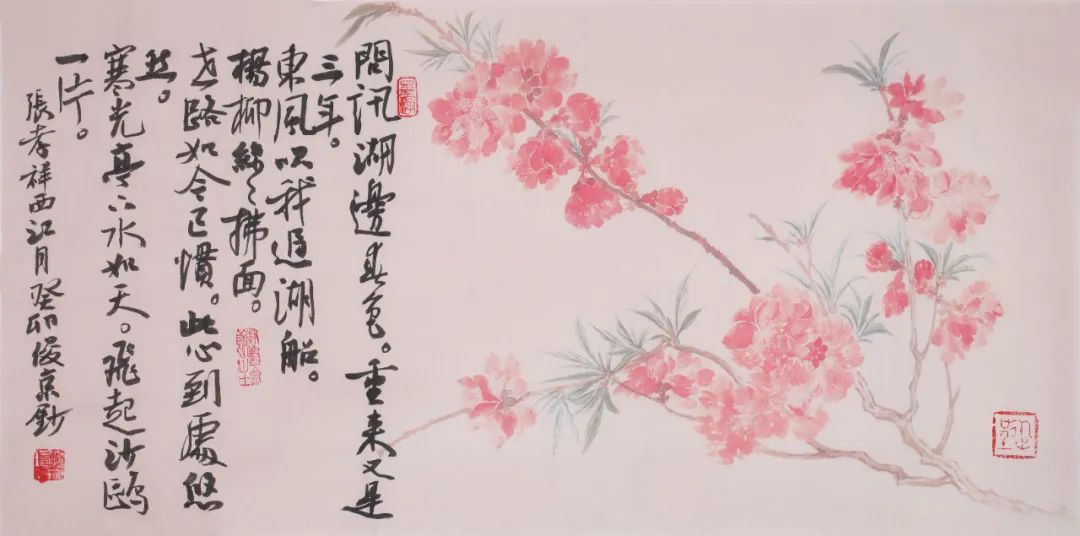 問訊湖邊春色。重来又是
三年。
東風吹我過湖船。
楊柳絲〻拂面。
世路如今已慣。此心到處悠
然。
寒光亭下水如天。飛起沙鷗
一片。
張孝祥西江月癸卯俊京鈔